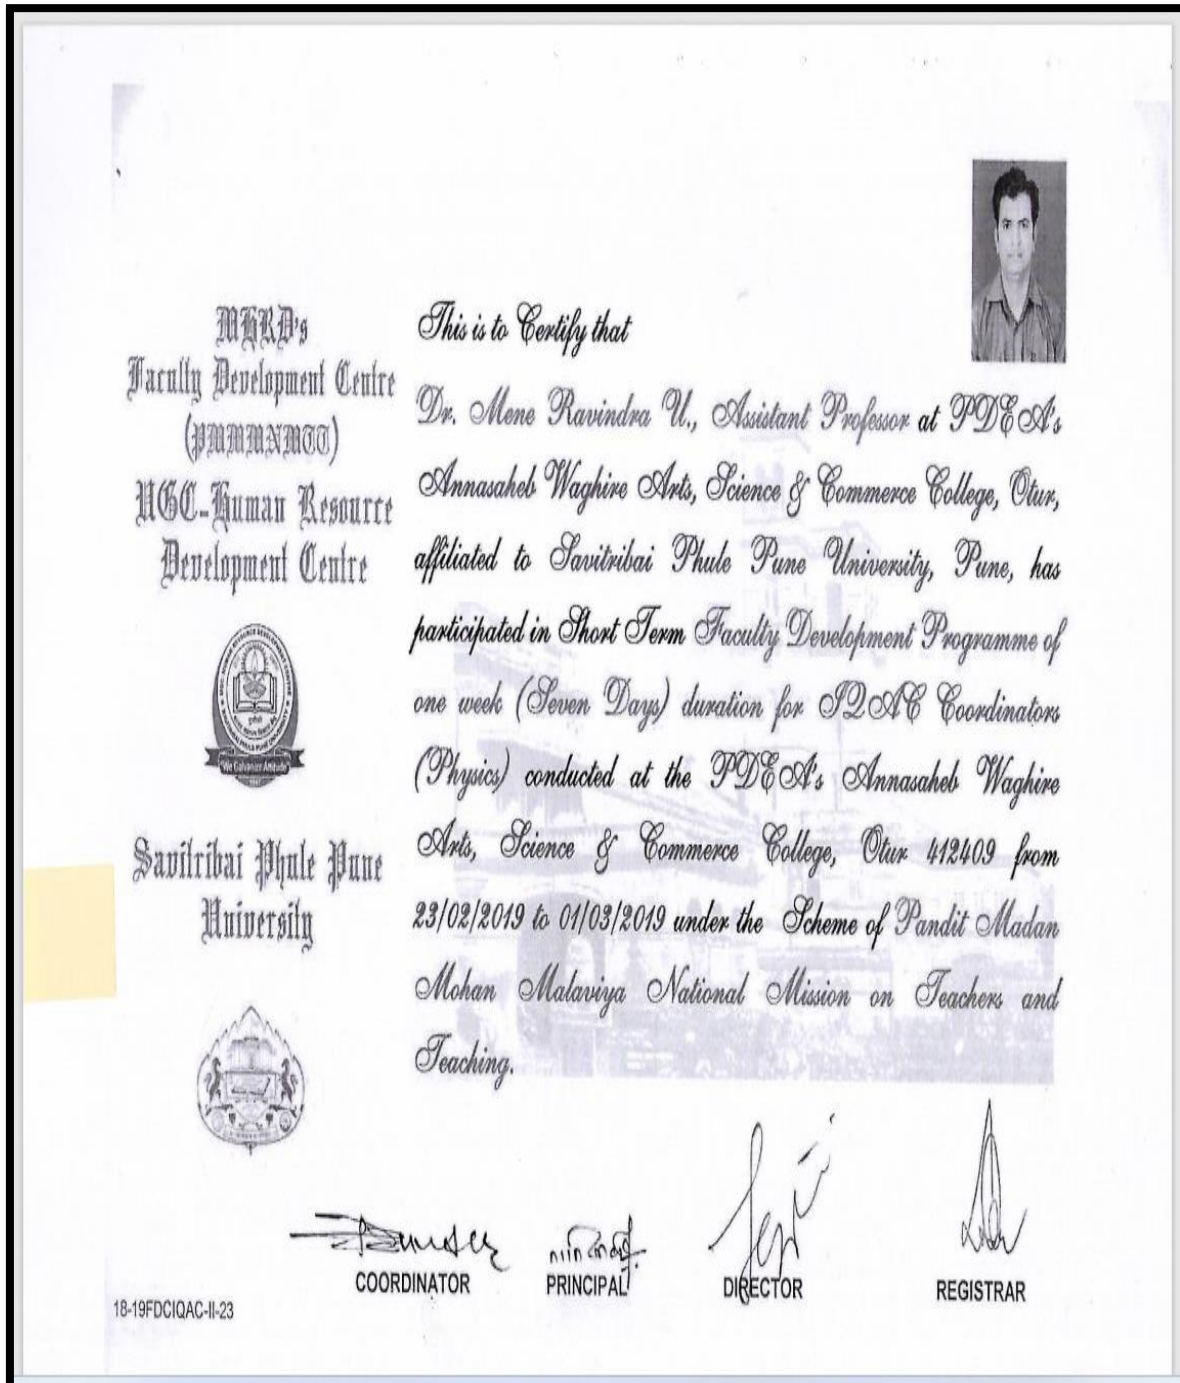 MHRD's
Faculty Development Centre
(PMMMNMTT)
UGC-Human Resource
Development Centre
We Galvanize Attitude
Savitribai Phule Pune
University
This is to Certify that
Dr. Mene Ravindra U., Assistant Professor at PDEA's
Annasaheb Waghire Arts, Science & Commerce College, Otur,
affiliated to Savitribai Phule Pune University, Pune, has
participated in Short Term Faculty Development Programme of
one week (Seven Days) duration for IQAC Coordinators
(Physics) conducted at the PDEA's Annasaheb Waghire
Arts, Science & Commerce College, Otur 412409 from
23/02/2019 to 01/03/2019 under the Scheme of Pandit Madan
Mohan Malaviya National Mission on Teachers and
Teaching.
COORDINATOR
PRINCIPAL
DIRECTOR
REGISTRAR
18-19FDCIQAC-II-23